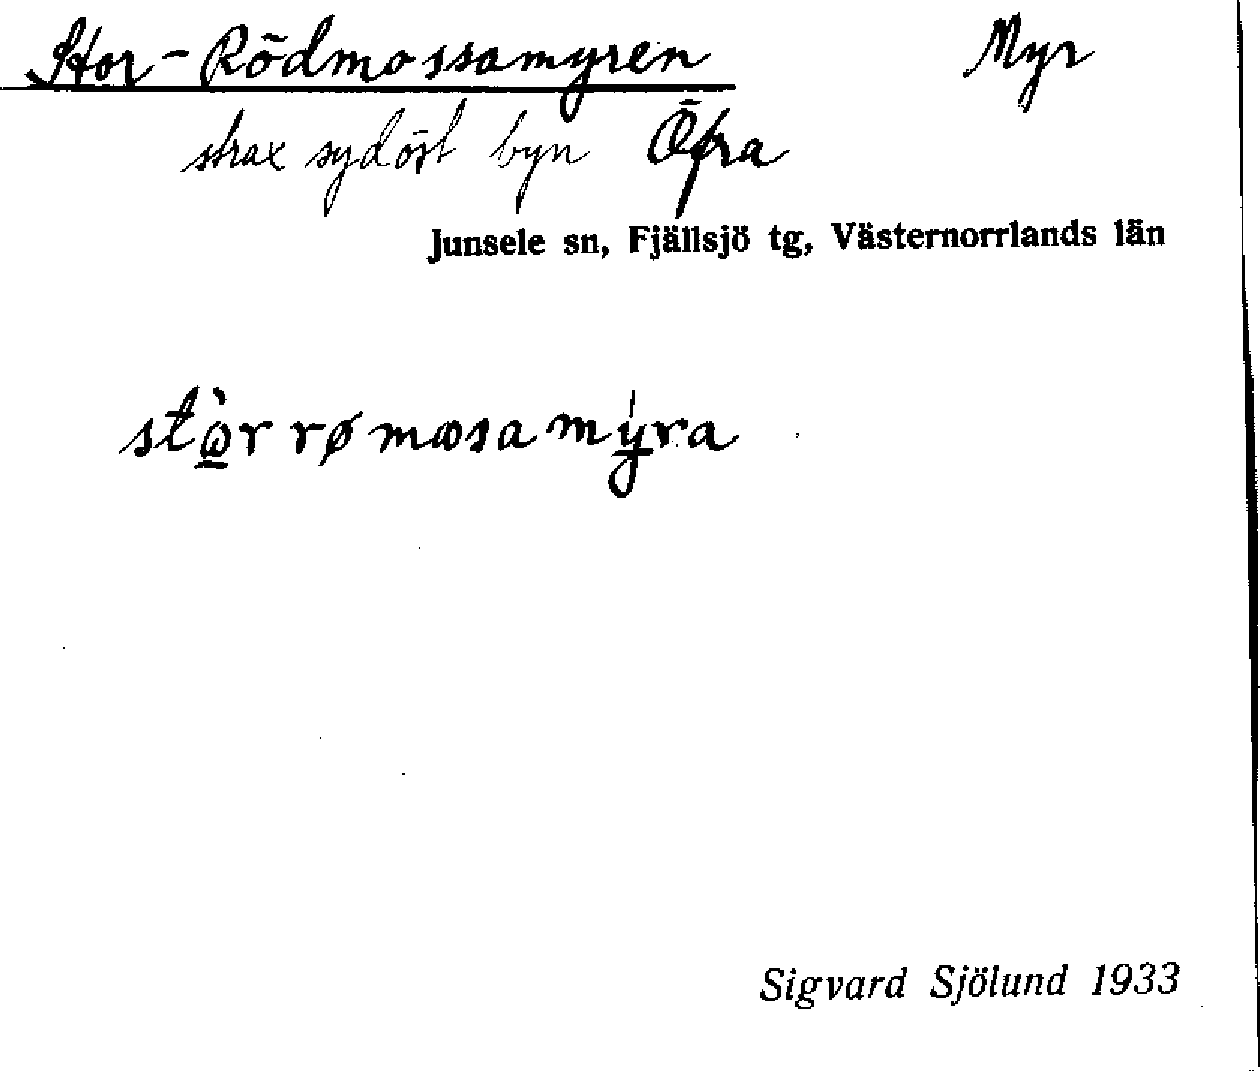 Stor-Rödmossamyren Myr
strax sydöst byn Öfra
Junsele sn, Fjällsjö tg, Västernorrlands län
stò̱r rømωsa mýra
Sigvard Sjölund 1933